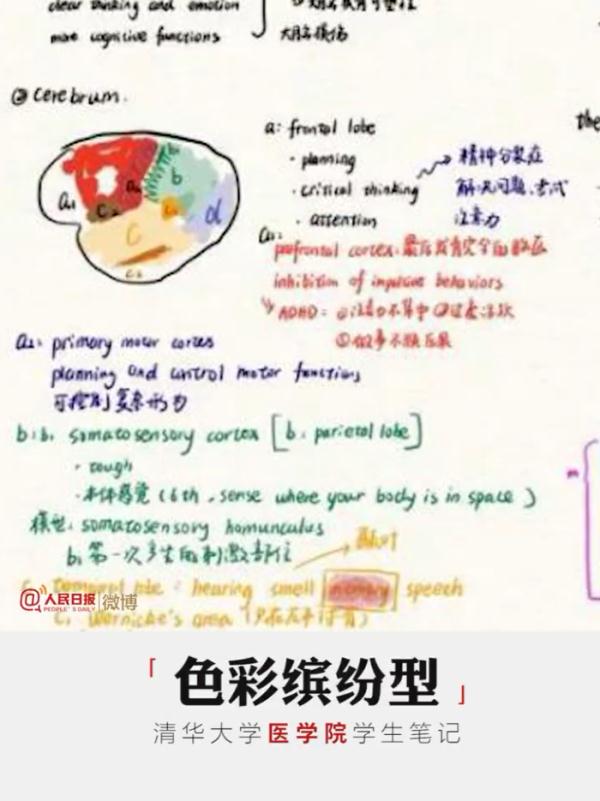 clear thinking and emotion
more cognitive functions
② cerebrum.
the
a: frontal lobe
· planning
· critical thinking
· attention
精神分裂症
解决问题、考试
注意力
a₁
a₂
b₁
b
c
d
c₂
a₁:
prefrontal cortex: 最后发育完全的脑区
inhibition of impulsive behaviors
ADHD: ①注意力不集中 ②过度活跃
③做事不顾后果
a₂: primary motor cortex
planning and control motor functions
可控制复杂形为
b: b₁ somatosensory cortex [b: parietal lobe]
· tough
· 本体感觉 (6th, sense where your body is in space)
模型: somatosensory homunculus
b₁ 第一次产生的刺激部位
颞叶
c temporal lobe: hearing smell memory speech
c₁ Wernicke's area (只在左半
@人民日报 微博
PEOPLE'S DAILY
「色彩缤纷型」
清华大学医学院学生笔记